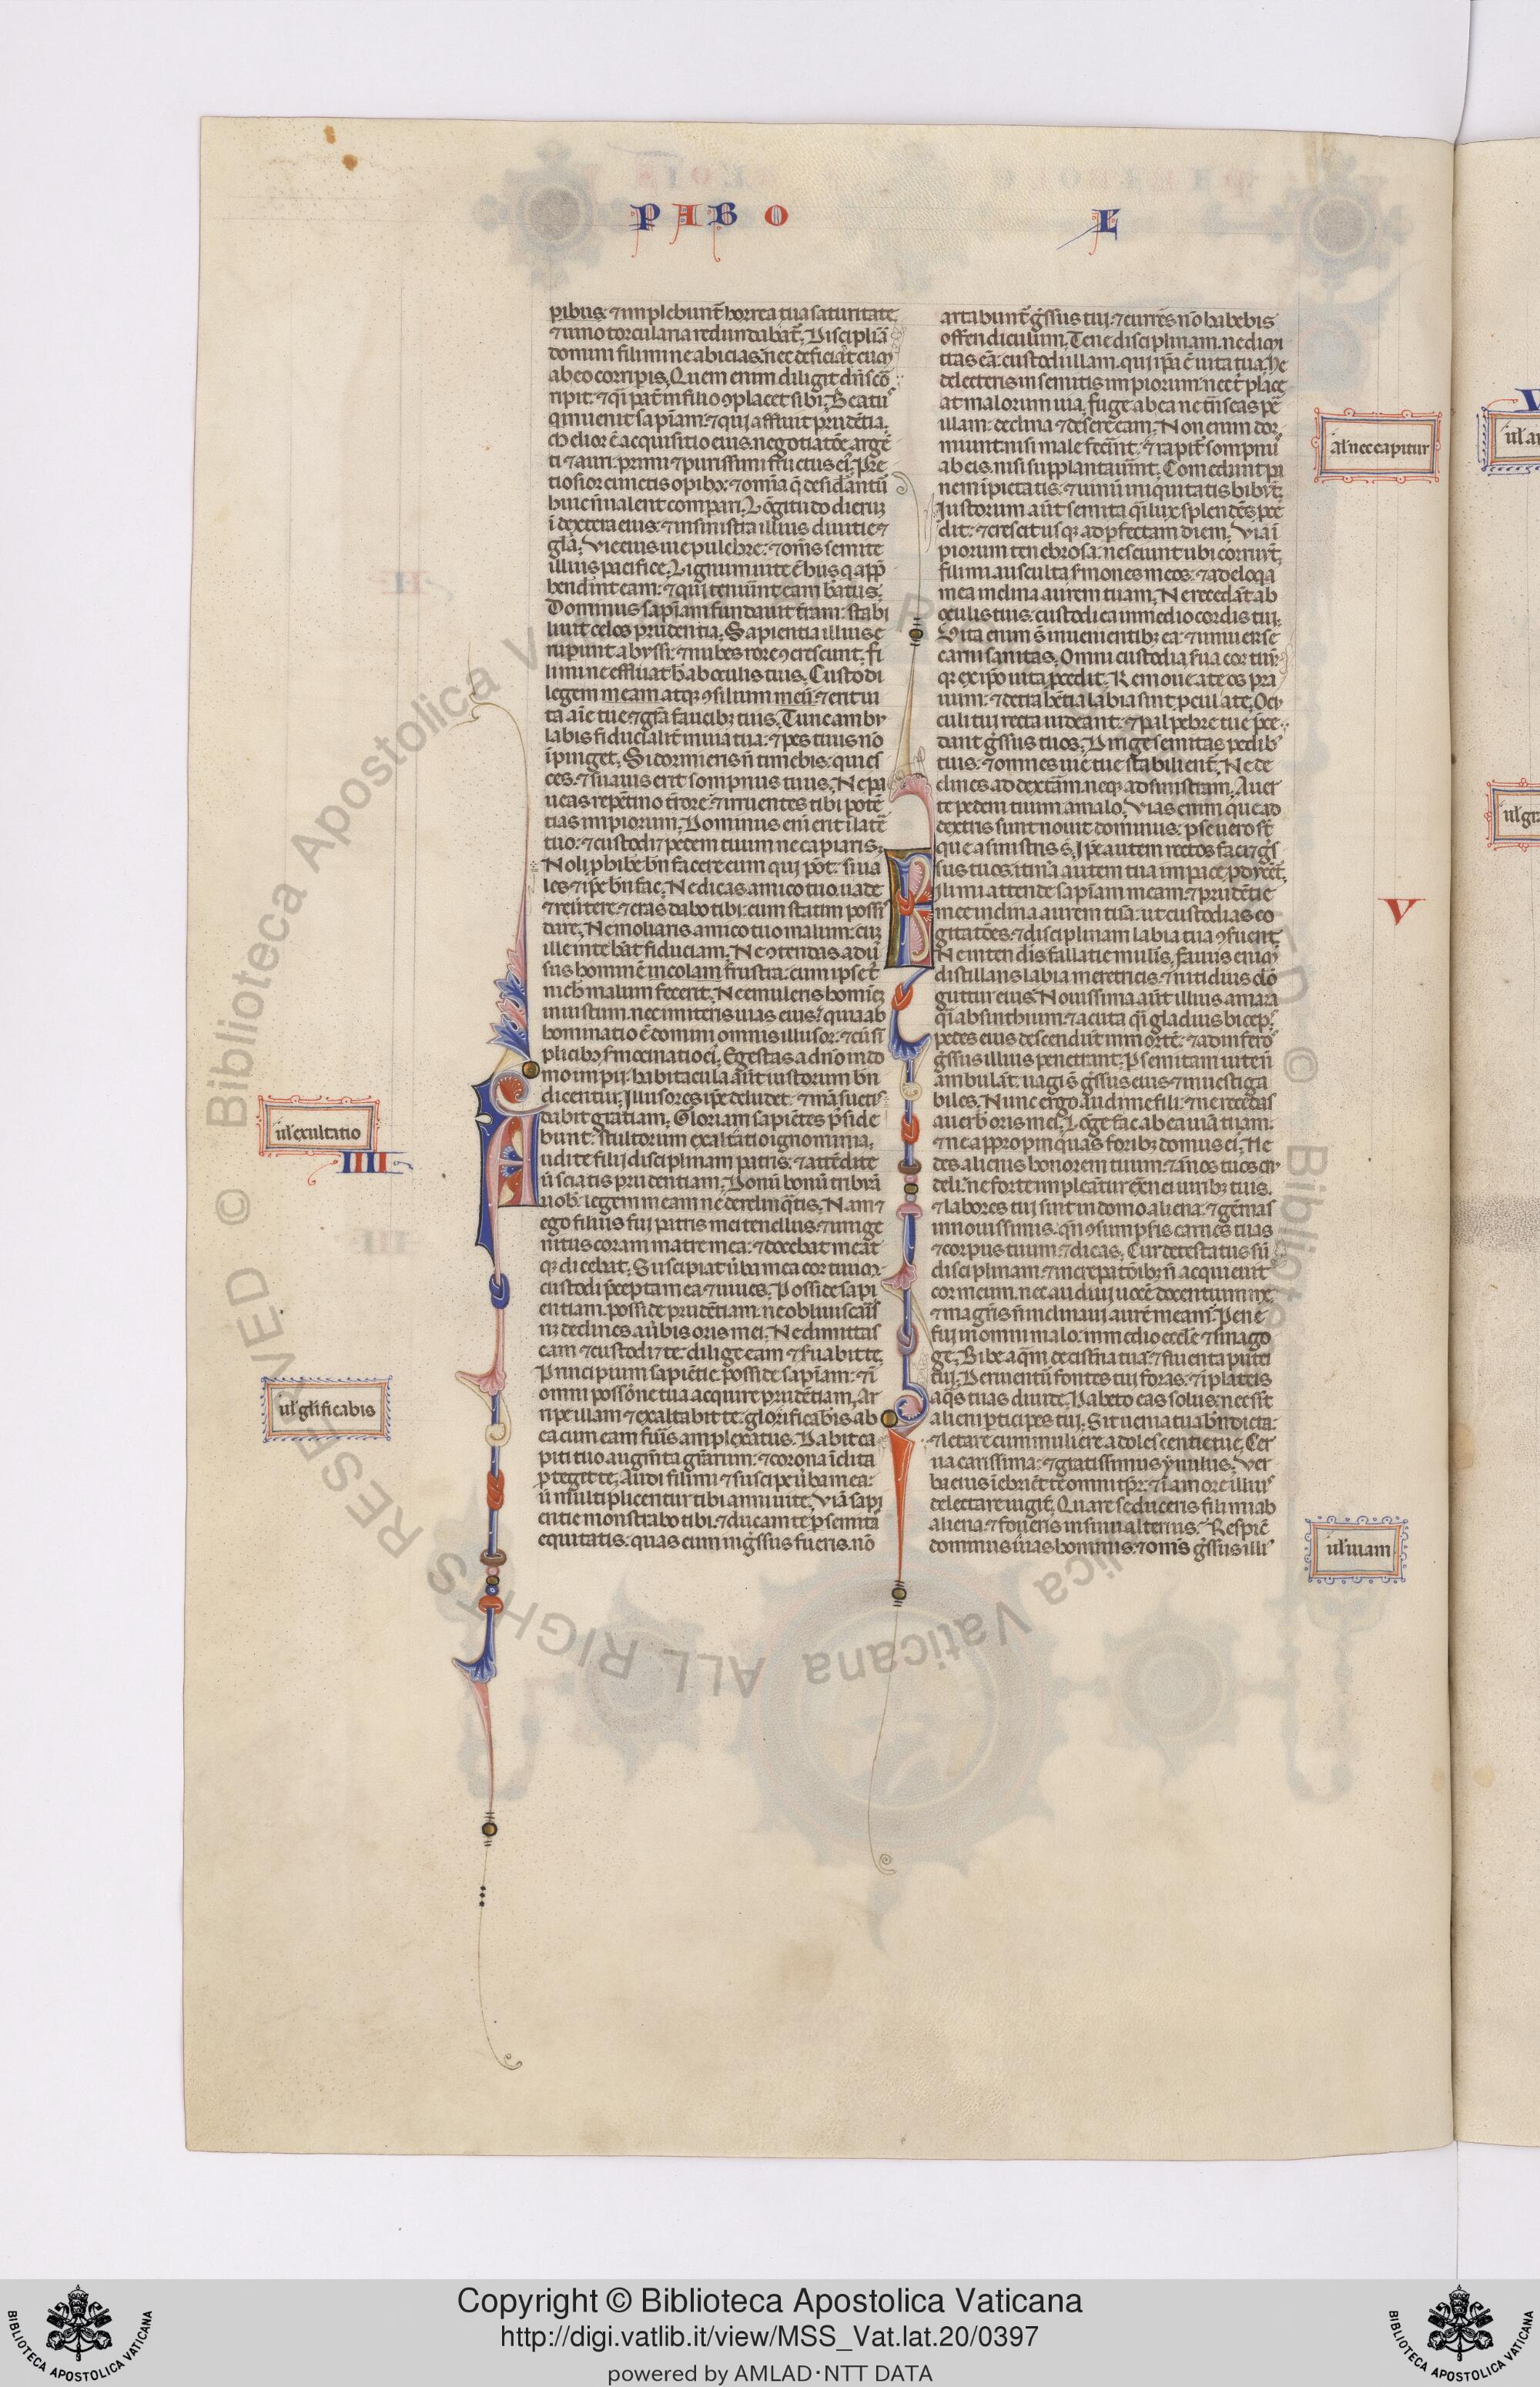 PABO L
pibus: ⁊ implebunt̃ horrea tua saturitate
⁊ uino torcularia redundabãt. Disciplinã
domini fili mi ne abicias: nec deficias cum
ab eo corripis. Quem enim diligit dñs cõ
ripit: ⁊ q̃i pat̃ in filio ɔplacet sibi. Beatus
q̃ inuenit sapiam: ⁊ qui affluit prudẽtia.
Melior ẽ acquisitio eius negotiatõe argẽ
ti ⁊ auri. primi ⁊ purissimi fructus eius. Pre
tiosior cunctis opibꝫ: ⁊ omĩa q̃ desidãntur
huic nr̃ ualent compari. Lõgitudo dierum
ĩ dextera eius: ⁊ in sinistra illius diuitie ⁊
gl̃a. Vie eius uie pulchre: ⁊ om̃s semite
illius pacifice. Lignum uite ẽ his q̃ app̃
henderint eam: ⁊ qui tenuerint eam beatus.
Dominus sapĩam fundauit t̃ram: stabi
liuit celos prudentia. Sapientia illius e
ruperunt abyssi: ⁊ nubes rore ɔcrescunt. Fi
li mi ne effluant hec ab oculis tuis. Custodi
legem meam atqꝫ ɔsilium meũ: ⁊ erit ui
ta aĩe tue ⁊ grã faucibꝫ tuis. Tunc ambu
labis fiducialit̃ in uia tua: ⁊ pes tuus nõ
ĩpinget. Si dormieris ñ timebis: quies
ces. ⁊ suauis erit sompnus tuus. Ne pa
ueas repẽtino t̃rore: ⁊ irruentes tibi potẽ
tias impiorum. Dominus eni erit ĩ latẽ
tuo: ⁊ custodi⁊ pedem tuum ne capiaris.
Noli ꝓhibẽ bñ facere eum qui põt: si ua
les ⁊ ipẽ bñ fac. Ne dicas amico tuo uade
⁊ reũtere: ⁊ cras dabo tibi: cum statim possis
dare. Ne moliaris amico tuo malum: cum
ille in te habet fiduciam. Ne ɔtendas aduer
sus hominẽ in colam frustra: cum ipse t
nichil malum fecerit. Ne emuleris hominẽ
iniustum. nec imiteris uias eius: quia ab
hominatio ẽ domini omnis illusor: ⁊ cũ sĩ
plicibꝫ s̃mocinatio ei. Egestas a dño in do
mo impii: habitacula aũt iustorum bñ
dicentur. Illusores ipẽ deludet: ⁊ mãsuetis
dabit gratiam. Gloriam sapiẽtes possside
bunt: stultorum exaltatio ignominia.
Audite filij disciplinam patris: ⁊ attẽdite
ũ sciatis prudentiam. Donũ bonũ tribuã
uob̃: legem meam ne derelinq̃tis. Nam ⁊
ego filius fui patris mei tenellus: ⁊ unige
nitus coram matre mea: ⁊ docebat me at
qꝫ dicebat. Suscipiat ũba mea cor tuum:
custodi p̃cepta mea ⁊ uiues. Posside sapi
entiam. posside prudẽtiam: ne obliuiscaris
nꝫ declines a ũbis oris mei. Ne dimittas
eam ⁊ custodi⁊ te: dilige eam ⁊ s̃uabit te.
Principium sapiẽtie posside sapĩam: ⁊ ĩ
omni possõne tua acquire prudẽtiam. Ar
ripe illam ⁊ exaltabit te: glorificabis ab
ea cum eam fuis amplexatus. Dabit ca
piti tuo augm̃ta gr̃arum: ⁊ corona ĩclita
ꝓteget te. Audi fili mi ⁊ suscipe ũba mea:
ũ multiplicentur tibi anni uite. Viã sapi
entie monstrabo tibi: ⁊ ducam te p semitã
equitatis: quas cum ing̃ssus fueris. nõ
artabunt̃ g̃ssus tui: ⁊ currẽs nõ habebis
offendiculum. Tene disciplinam. ne dimi
ttas eã: custodi illam. qui ip̃a ẽ uita tua. Ne
delecteris in semitis impiorum: nec t̃ place
at malorum uia. fuge ab ea ne trãseas pẽ
illam: declina ⁊ desere eam. Non enim dor
miunt nisi male fecint: ⁊ rapit̃ sompnus
ab eis. nisi supplantauint. Comedunt pa
nem ĩpietatis: ⁊ uinũ iniquitatis bibũt.
Justorum aũt semita q̃i lux splendẽs proce
dit: ⁊ crescit usqꝫ ad ꝑfectam diem. Via ĩ
piorum tenebrosa: nesciunt ubi corruũt.
fili mi ausculta s̃mones meos: ⁊ ad eloq̃a
mea inclina aurem tuam. Ne recedãt ab
oculis tuis: custodi ea in medio cordis tui.
Vita enim s̃ inuenientibꝫ ea: ⁊ uniuerse
carni sanitas. Omni custodia s̃ua cor tuũ:
qꝫ ex ipo uita p̃cedit. Remoue a te os pra
uum: ⁊ detrahẽtia labia sint ꝓcul a te. Ocu
culi tui recta uideant: ⁊ palpebre tue p̃ce
dant g̃ssus tuos. Dirige semitas pedibus
tuis: ⁊ omnes uie tue stabilient̃. Ne de
clines ad dextãm. neqꝫ ad sinistram. Auer
te pedem tuum a malo. Vias enim que a d
dextris sunt nouit dominus: ꝑuerse uero st̃
que a sinistris s̃. Ipẽ autem rectos faci⁊ g̃s
sus tuos: itinera autem tua in pace ꝓducet.
Fili mi attende sapĩam meam: ⁊ prudẽtie
mee inclina aurem tuã: ut custodias co
gitatões: ⁊ disciplinam labia tua ɔs̃uent.
Ne intendis fallatie mulis. Fauus enim
distillans labia meretricis: ⁊ nitidius oleo
guttur eius. Nouissima aũt illius amara
q̃i absinthium: ⁊ acuta q̃i gladius biceps.
pedes eius descendũt in mortẽ: ⁊ ad inferos
g̃ssus illius penetrant. P semitam uite ñ
ambulãt: uagi s̃ g̃ssus eius ⁊ inuestiga
biles. Nunc ergo audi me fili: ⁊ ne recedas
a uerb̃ oris mei. Lõge fac ab ea uiã tuam:
⁊ ne appropinquas foribꝫ domus ei. Ne
des alienis honorem tuum: ⁊ ãnos tuos cru
deli: ne forte impleãtur ext̃nei uiribꝫ tuis.
⁊ labores tui sint in domo aliena: ⁊ gemas
in nouissimis. qñ ɔsumpsis carnes tuas
⁊ corpus tuum: ⁊ dicas. Cur detestatus sũ
disciplinam: ⁊ increpatõibꝫ ñ acquieuit
cor meum. nec audiui uocẽ docentium me
⁊ magris ñ inclinaui aurẽ meam: Pene
fui in omni malo: in medio eccl̃e ⁊ sinago
ge. Bibe aq̃m de cist̃na tua: ⁊ fluenta putei
tui. Deriuentur fontes tui foras: ⁊ ĩ plateis
aq̃s tuas diuide. Habeto eas solus: nec sint
alieni pticipes tui. Sit uena tua bñdicta:
⁊ letare cum muliere adolescentie tue. Cer
ua carissima: ⁊ gratissimus ynnulus. Ver
ba eius ĩebriẽt te omni tp̃r: ⁊ ĩ amore illius
delectare iugit̃. Quare seduceris fili mi ab
aliena: ⁊ foueris in sinu alterius: Respicit
dominus uias hominis: ⁊ om̃s g̃ssus illius
ul̃ exultatio
IIII
ul̃ glificabis
al̃ nec capitur
V
ul̃ uiam
© Biblioteca Apostolica Vaticana ALL RIGHTS RESERVED
Copyright © Biblioteca Apostolica Vaticana
http://digi.vatlib.it/view/MSS_Vat.lat.20/0397
powered by AMLAD·NTT DATA
BIBLIOTECA APOSTOLICA VATICANA
BIBLIOTECA APOSTOLICA VATICANA